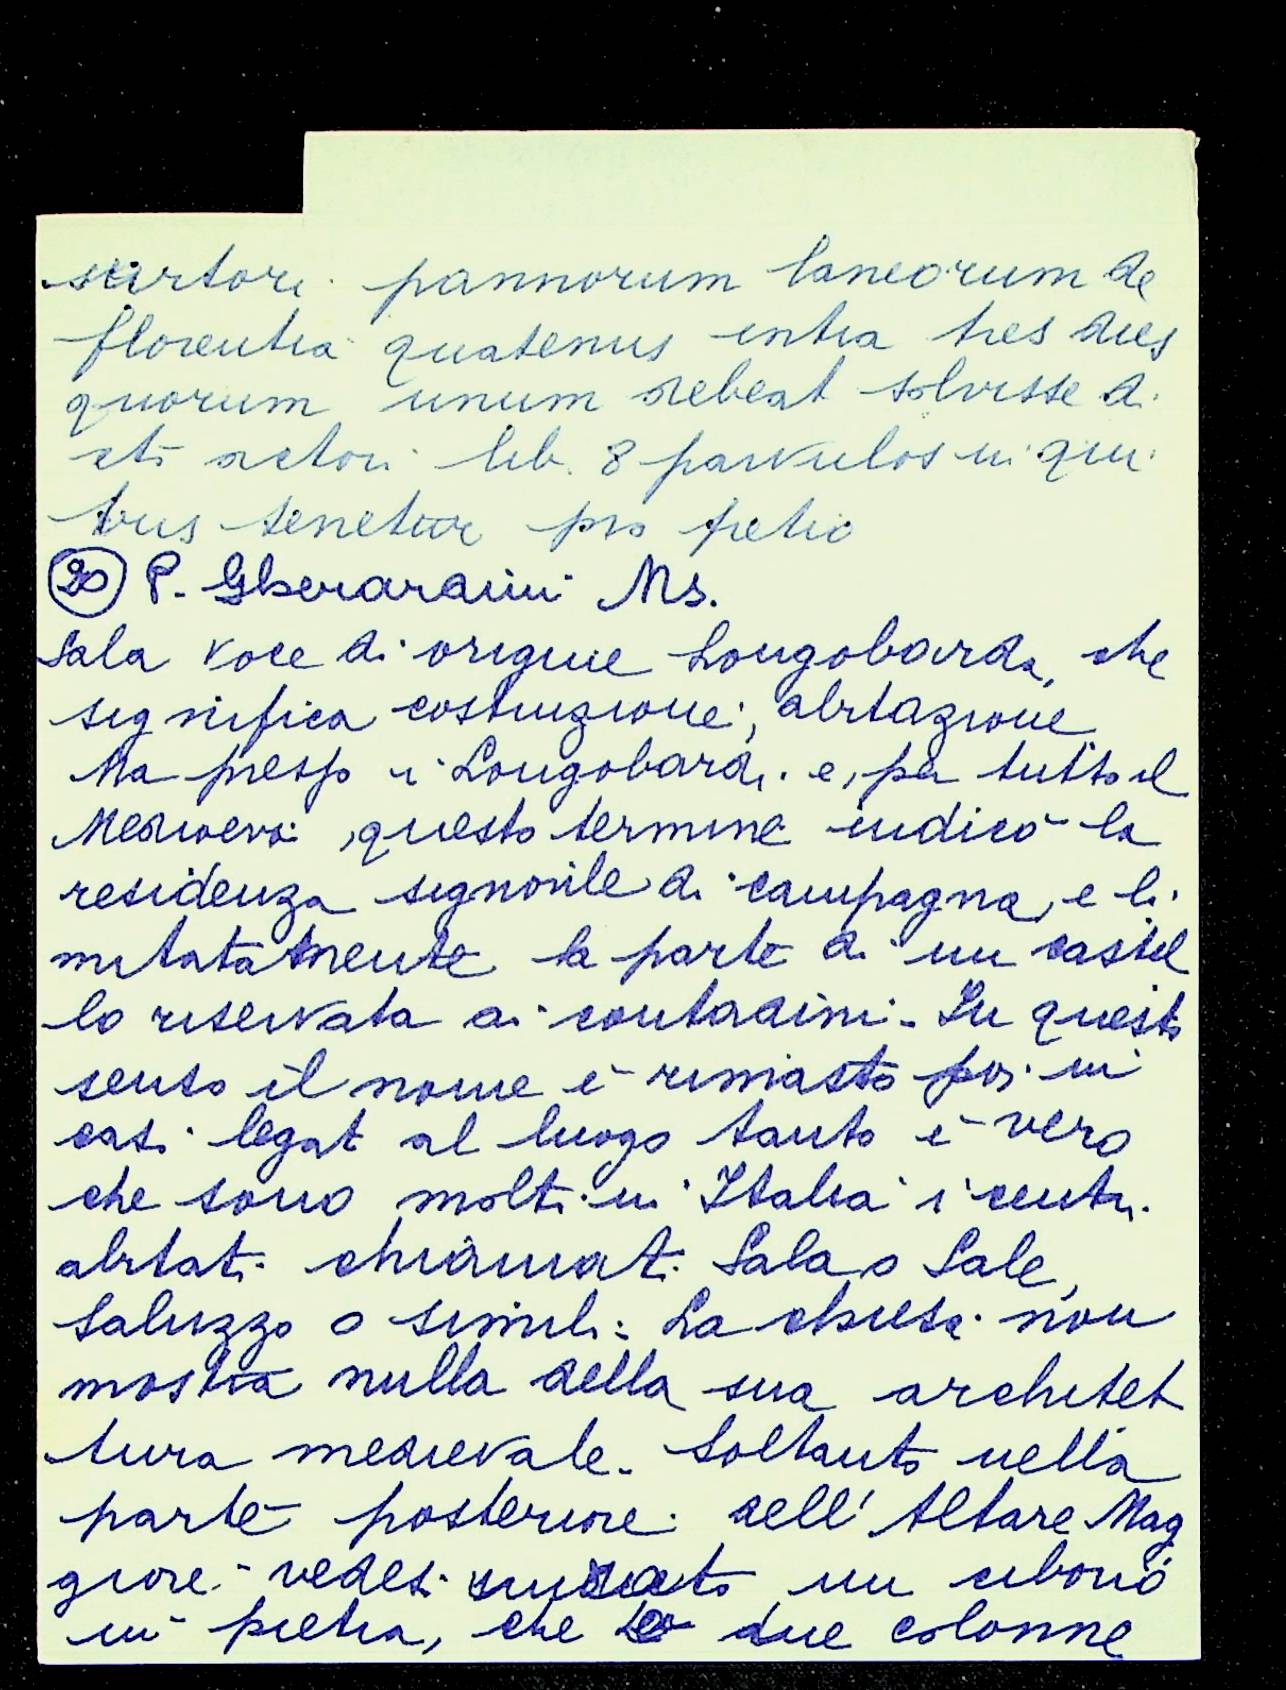 sartori pannorum laneorum de
florentia quatenus intra tres dies
quorum unum debeat solvisse di
cti actori lib. 8 parvulos in qui
bus tenetur pro petio
20 P. Gherardini Ms.
Sala voce di origine Longobarda, che
significa costruzione, abitazione
Ma presso i Longobardi e, per tutto il
Medioevo, questo termine indicò la
residenza signorile di campagna, e li
mitatamente la parte di un castel
lo riservata ai contadini. In questo
senso il nome è rimasto poi in
casi legati al luogo tanto è vero
che sono molti in Italia i centri
abitati chiamati Sala o Sale,
Saluzzo o simili. La chiesa non
mostra nulla della sua architet
tura medievale. Soltanto nella
parte posteriore dell'Altare Mag
giore vedesi murato un ciborio
in pietra, che due colonne